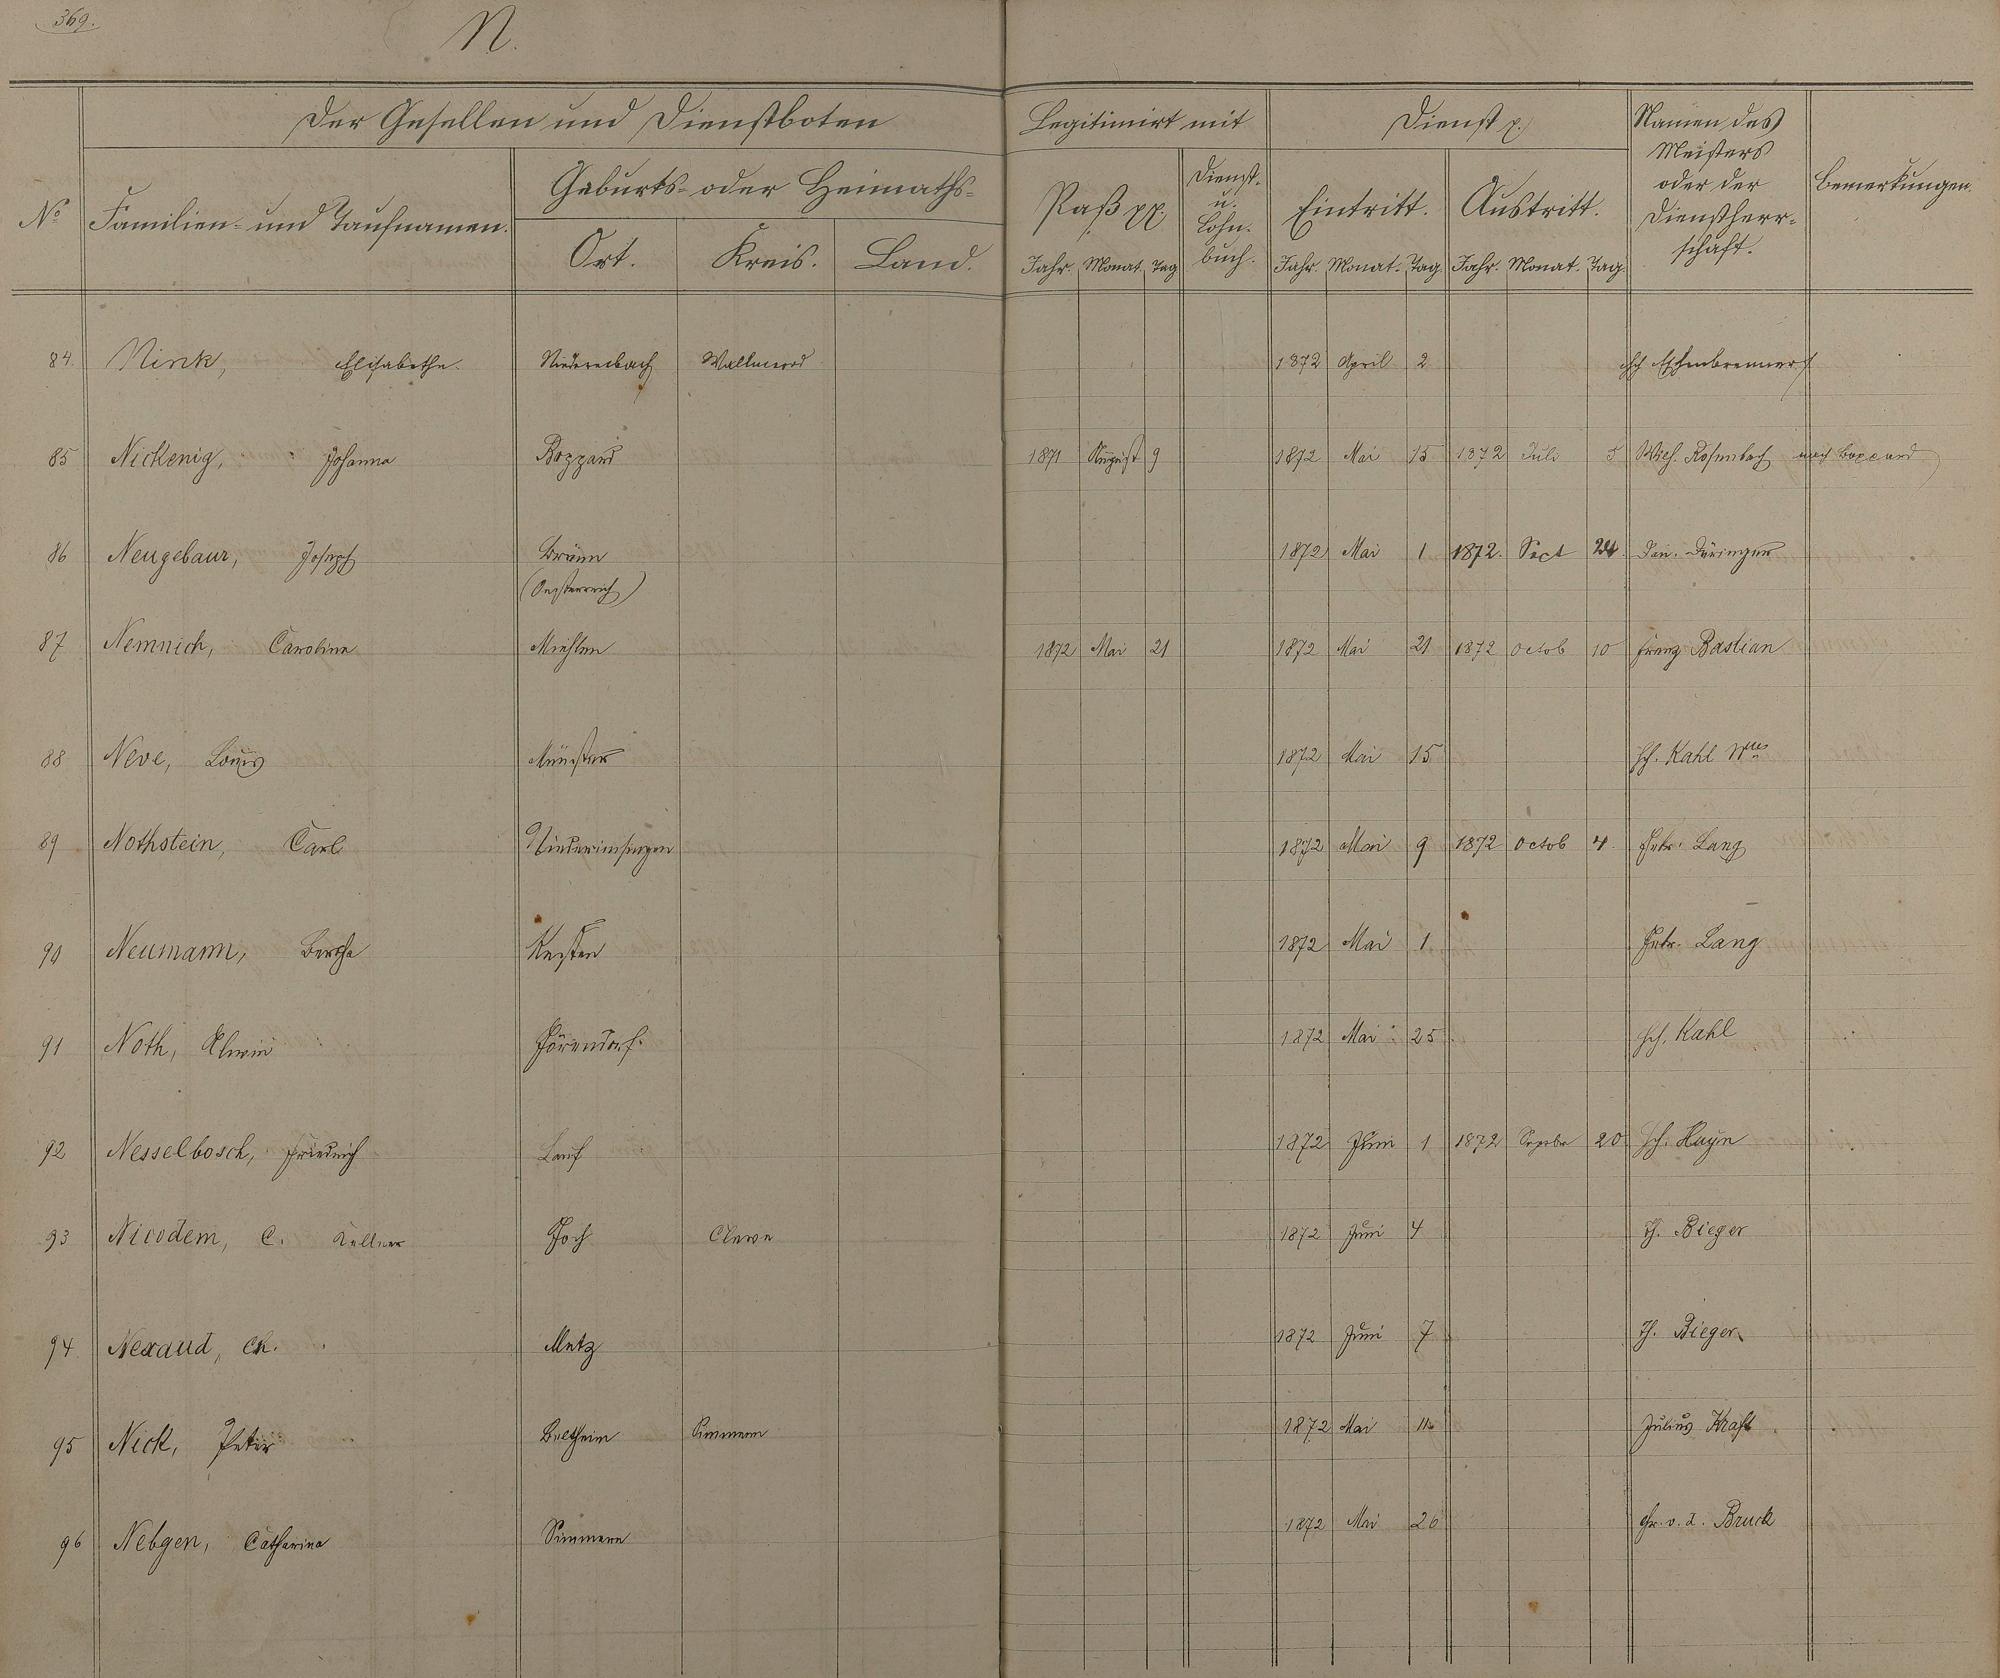 369.
N.
Der Gesellen und Dienstboten
Legitimirt mit
Dienst p.
Namen des
Meisters
oder der
Dienstherr-
schaft.
Bemerkungen.
No
Familien- und Taufnamen.
Geburts- oder Heimaths-
Ort. Kreis. Land.
Paß pp.
Dienst-
u.
Lohn-
buch.
Eintritt. Austritt.
Jahr. Monat. Tag Jahr. Monat. Tag. Jahr. Monat. Tag.
84. Nink, Elisabetha. Wallmerod 1872 April 2
85 Nickenig, Johanna Boppard 1871 August 9 1872 Mai 15 1872 Juli 5 Wilh. Rosenbach nach Boppard
86 Neugebaur, Joseph Brünn 1872 Mai 1 1872. Sept 24.
(Oesterreich)
87 Nemnich, Carolina Miehlen 1872 Mai 21 1872 Mai 21 1872 Octob 10 Franz Bastian
88 Neve, Louis Münster 1872 Mai 15 Hch. Kahl Wwe
89 Nothstein, Carl 1872 Mai 9 1872 Octob 4. Petr. Lang
90 Neumann, Bertha Kesten 1872 Mai 1 Petr. Lang
91 Noth, 1872 Mai 25 Hch. Kahl
92 Nesselbosch, Friedrich Lauf 1872 Juni 1 1872 Septbr 20. Hch. Huyn
93 Nicodem, C. Kellner Goch Cleve 1872 Juni 4 Th. Bieger
94 Nexaud, Ch. Metz 1872 Juni 7 Th. Bieger
95 Nick, Peter Beltheim Simmern 1872 Mai 11. Julius Kraft
96 Nebgen, Catharina Simmern 1872 Mai 26 Chr. v. d. Bruck